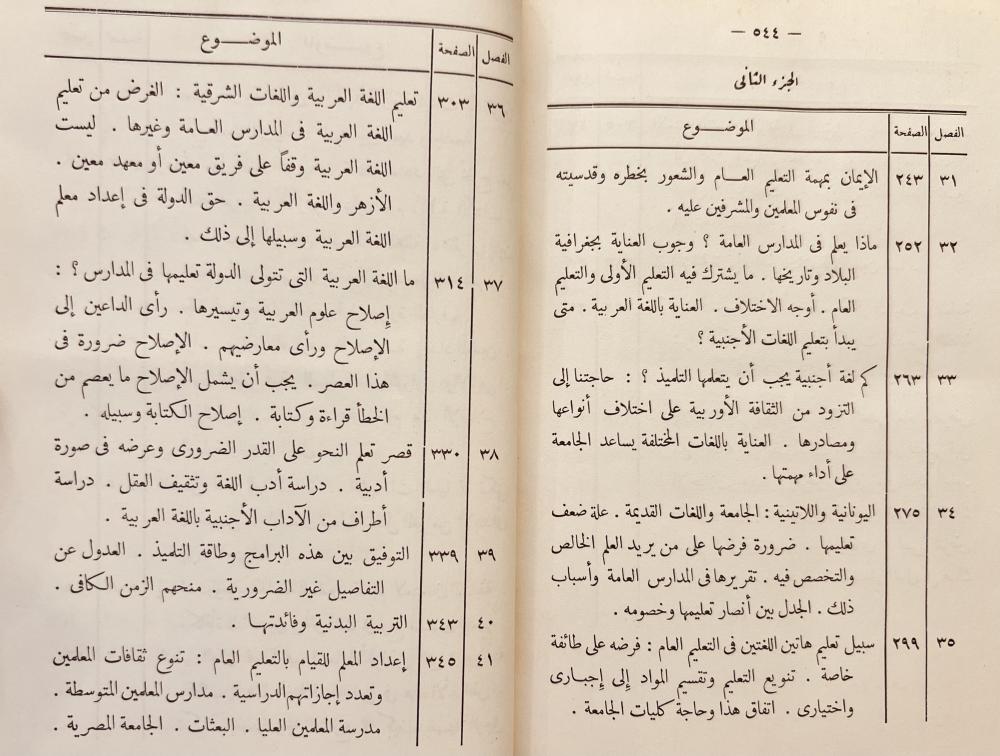 — ٥٤٤ —
الجزء الثانى
الفصل الصفحة الموضـــوع
٣١ ٢٤٣ الإيمان بمهمة التعليم العـــام والشعور بخطره وقدسيته
فى نفوس المعلمين والمشرفين عليه .
٣٢ ٢٥٢ ماذا يعلم فى المدارس العامة ؟ وجوب العناية بجغرافية
البلاد وتاريخها . ما يشترك فيه التعليم الأولى والتعليم
العام . أوجه الاختلاف . العناية باللغة العربية . متى
يبدأ بتعليم اللغات الأجنبية ؟
٣٣ ٢٦٣ كم لغة أجنبية يجب أن يتعلمها التلميذ ؟ : حاجتنا إلى
التزود من الثقافة الأوربية على اختلاف أنواعها
ومصادرها . العناية باللغات المختلفة يساعد الجامعة
على أداء مهمتها .
٣٤ ٢٧٥ اليونانية واللاتينية : الجامعة واللغات القديمة . علة ضعف
تعليمها . ضرورة فرضها على من يريد العلم الخالص
والتخصص فيه . تقريرها فى المدارس العامة وأسباب
ذلك . الجدل بين أنصار تعليمها وخصومه .
٣٥ ٢٩٩ سبيل تعليم هاتين اللغتين فى التعليم العام : فرضه على طائفة
خاصة . تنويع التعليم وتقسيم المواد إلى إجبارى
واختيارى . اتفاق هذا وحاجة كليات الجامعة .
الفصل الصفحة الموضـــوع
٣٦ ٣٠٣ تعليم اللغة العربية واللغات الشرقية : الغرض من تعليم
اللغة العربية فى المدارس العـامة وغيرها . ليست
اللغة العربية وقفاً على فريق معين أو معهد معين .
الأزهر واللغة العربية . حق الدولة فى إعداد معلم
اللغة العربية وسبيلها إلى ذلك .
٣٧ ٣١٤ ما اللغة العربية التى تتولى الدولة تعليمها فى المدارس ؟ :
إصلاح علوم العربية وتيسيرها . رأى الداعين إلى
الإصلاح ورأى معارضيهم . الإصلاح ضرورة فى
هذا العصر . يجب أن يشمل الإصلاح ما يعصم من
الخطأ قراءة وكتابة . إصلاح الكتابة وسبيله .
٣٨ ٣٣٠ قصر تعلم النحو على القدر الضرورى وعرضه فى صورة
أدبية . دراسة أدب اللغة وتثقيف العقل . دراسة
أطراف من الآداب الأجنبية باللغة العربية .
٣٩ ٣٣٩ التوفيق بين هذه البرامج وطاقة التلميذ . العدول عن
التفاصيل غير الضرورية . منحهم الزمن الكافى .
٤٠ ٣٤٣ التربية البدنية وفائدتهـا .
٤١ ٣٤٥ إعداد المعلم للقيام بالتعليم العام : تنوع ثقافات المعلمين
وتعدد إجازاتهم الدراسية . مدارس المعلمين المتوسطة .
مدرسة المعلمين العليا . البعثات . الجامعة المصرية .